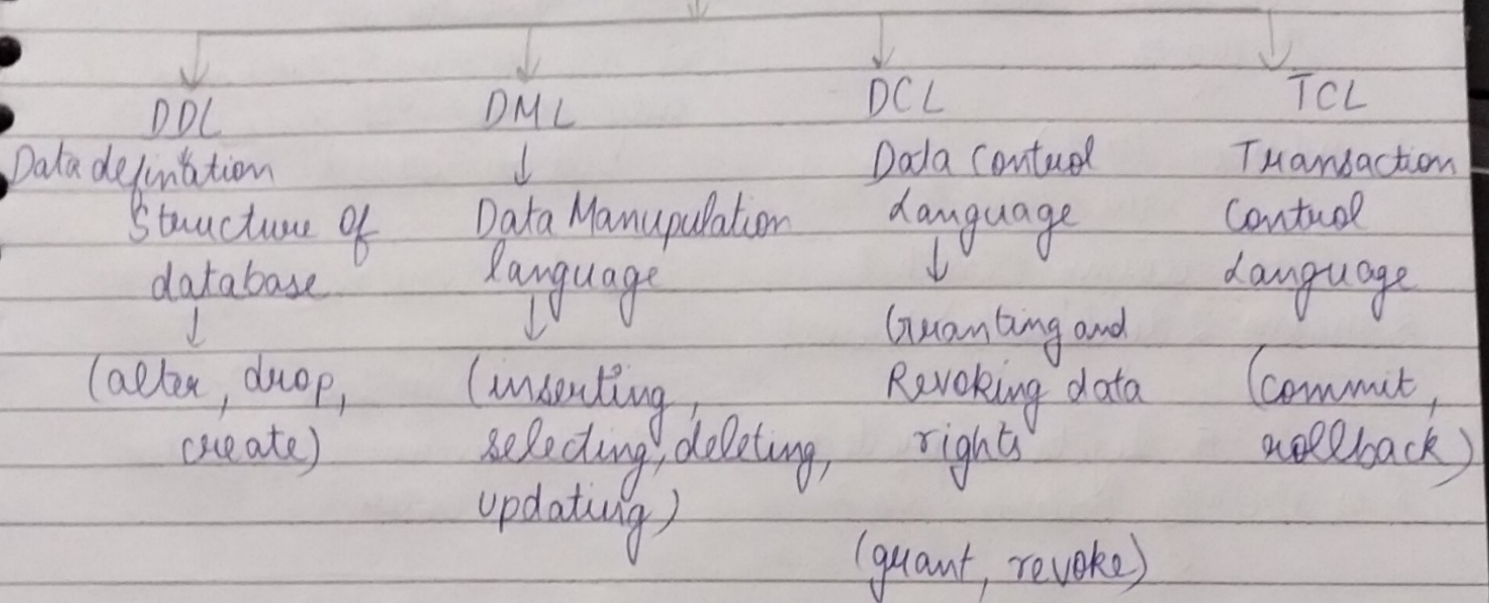 DDL
Data definition
Structure of
database
(alter, drop,
create)
DML
Data Manupulation
language
(inserting,
selecting, deleting,
updating)
DCL
Data Control
Language
Granting and
Revoking data
rights
(grant, revoke)
TCL
Transaction
Control
Language
(commit,
rollback)